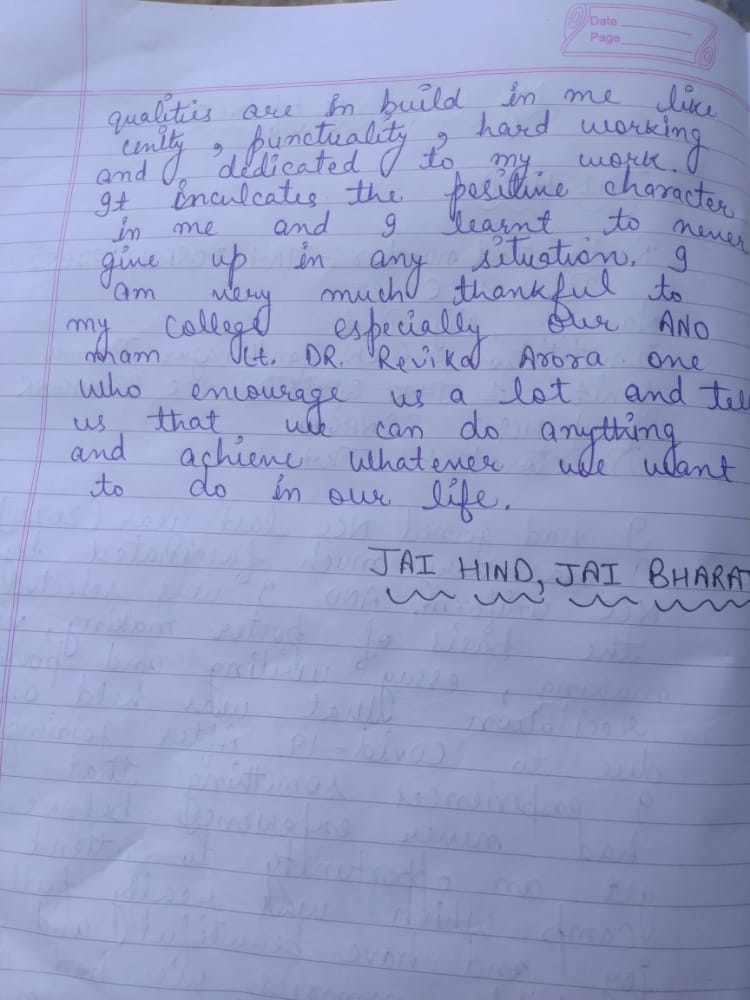 Date
Page
qualities are in build in me like
unity, punctuality, hard working
and dedicated to my work.
It inculcates the positive character
in me and I learnt to never
give up in any situation. I
am very much thankful to
my college especially our ANO
mam Lt. DR. Revika Arora one
who encourage us a lot and tell
us that we can do anything
and achieve whatever we want
to do in our life.
JAI HIND, JAI BHARAT